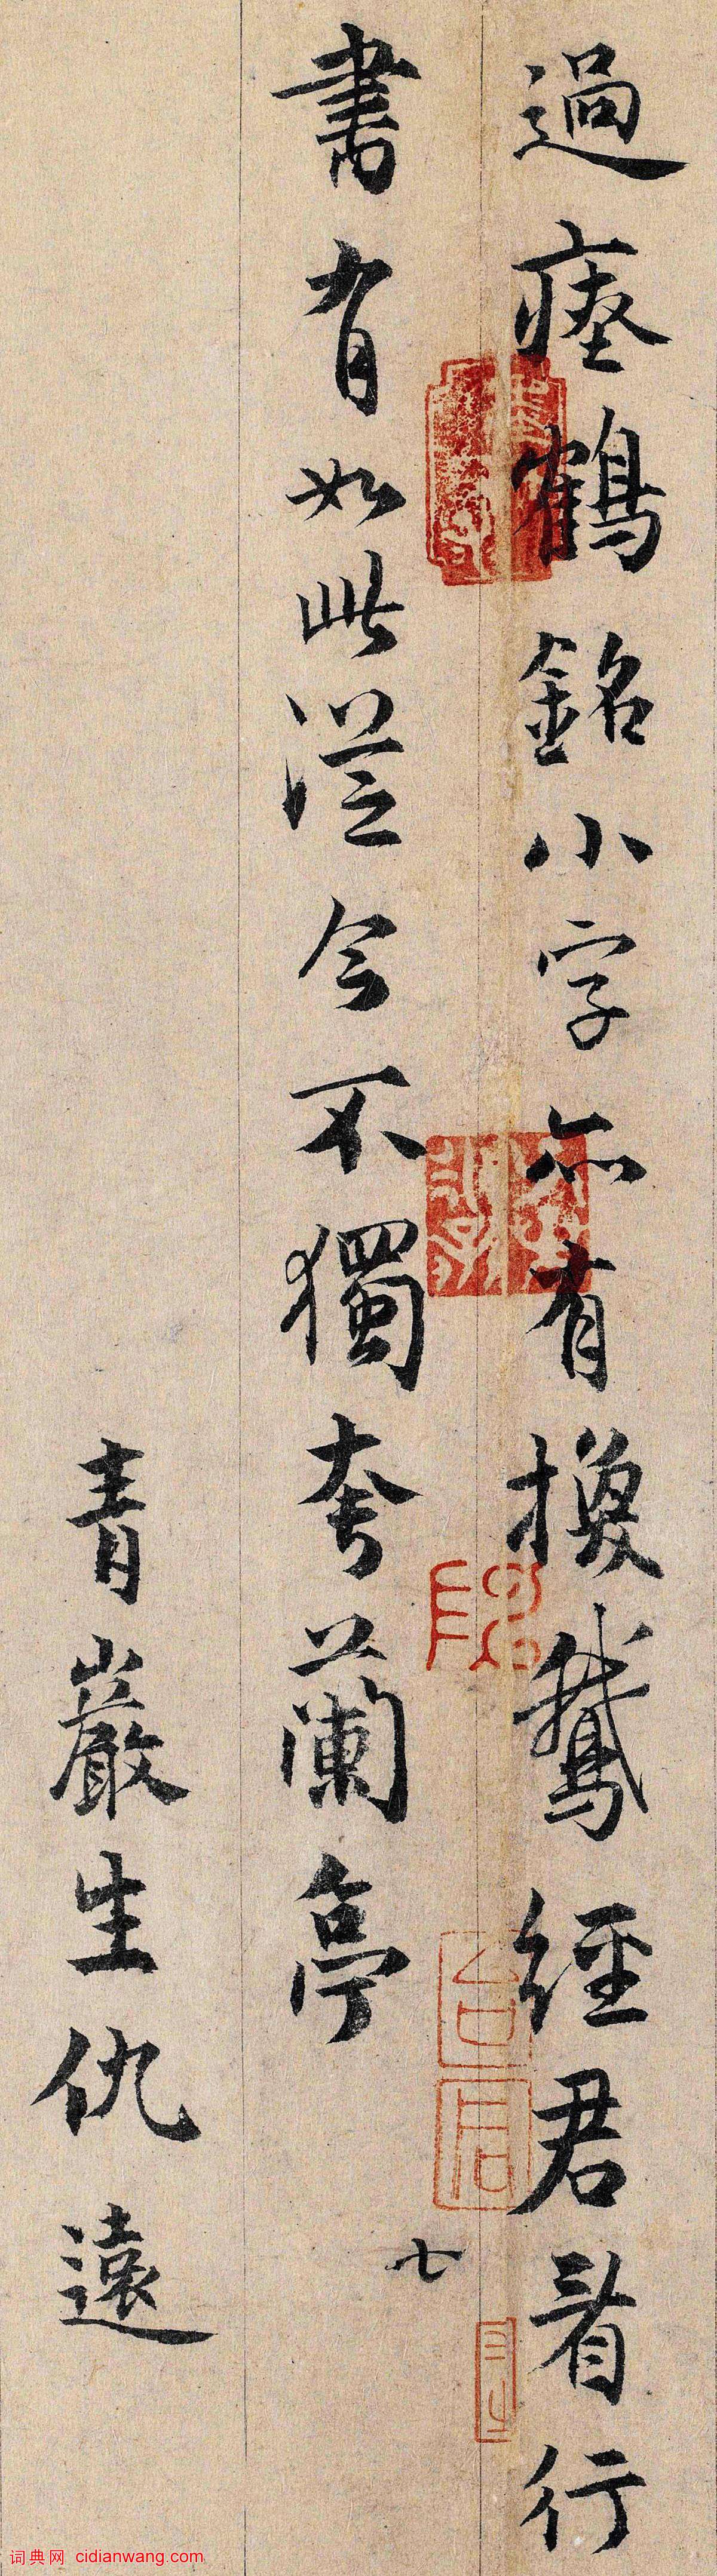 過瘞鶴銘小字亦有換鵝經君看行
書有如此從今不獨夸蘭亭
七
青巖生仇遠
词典网 cidianwang.com